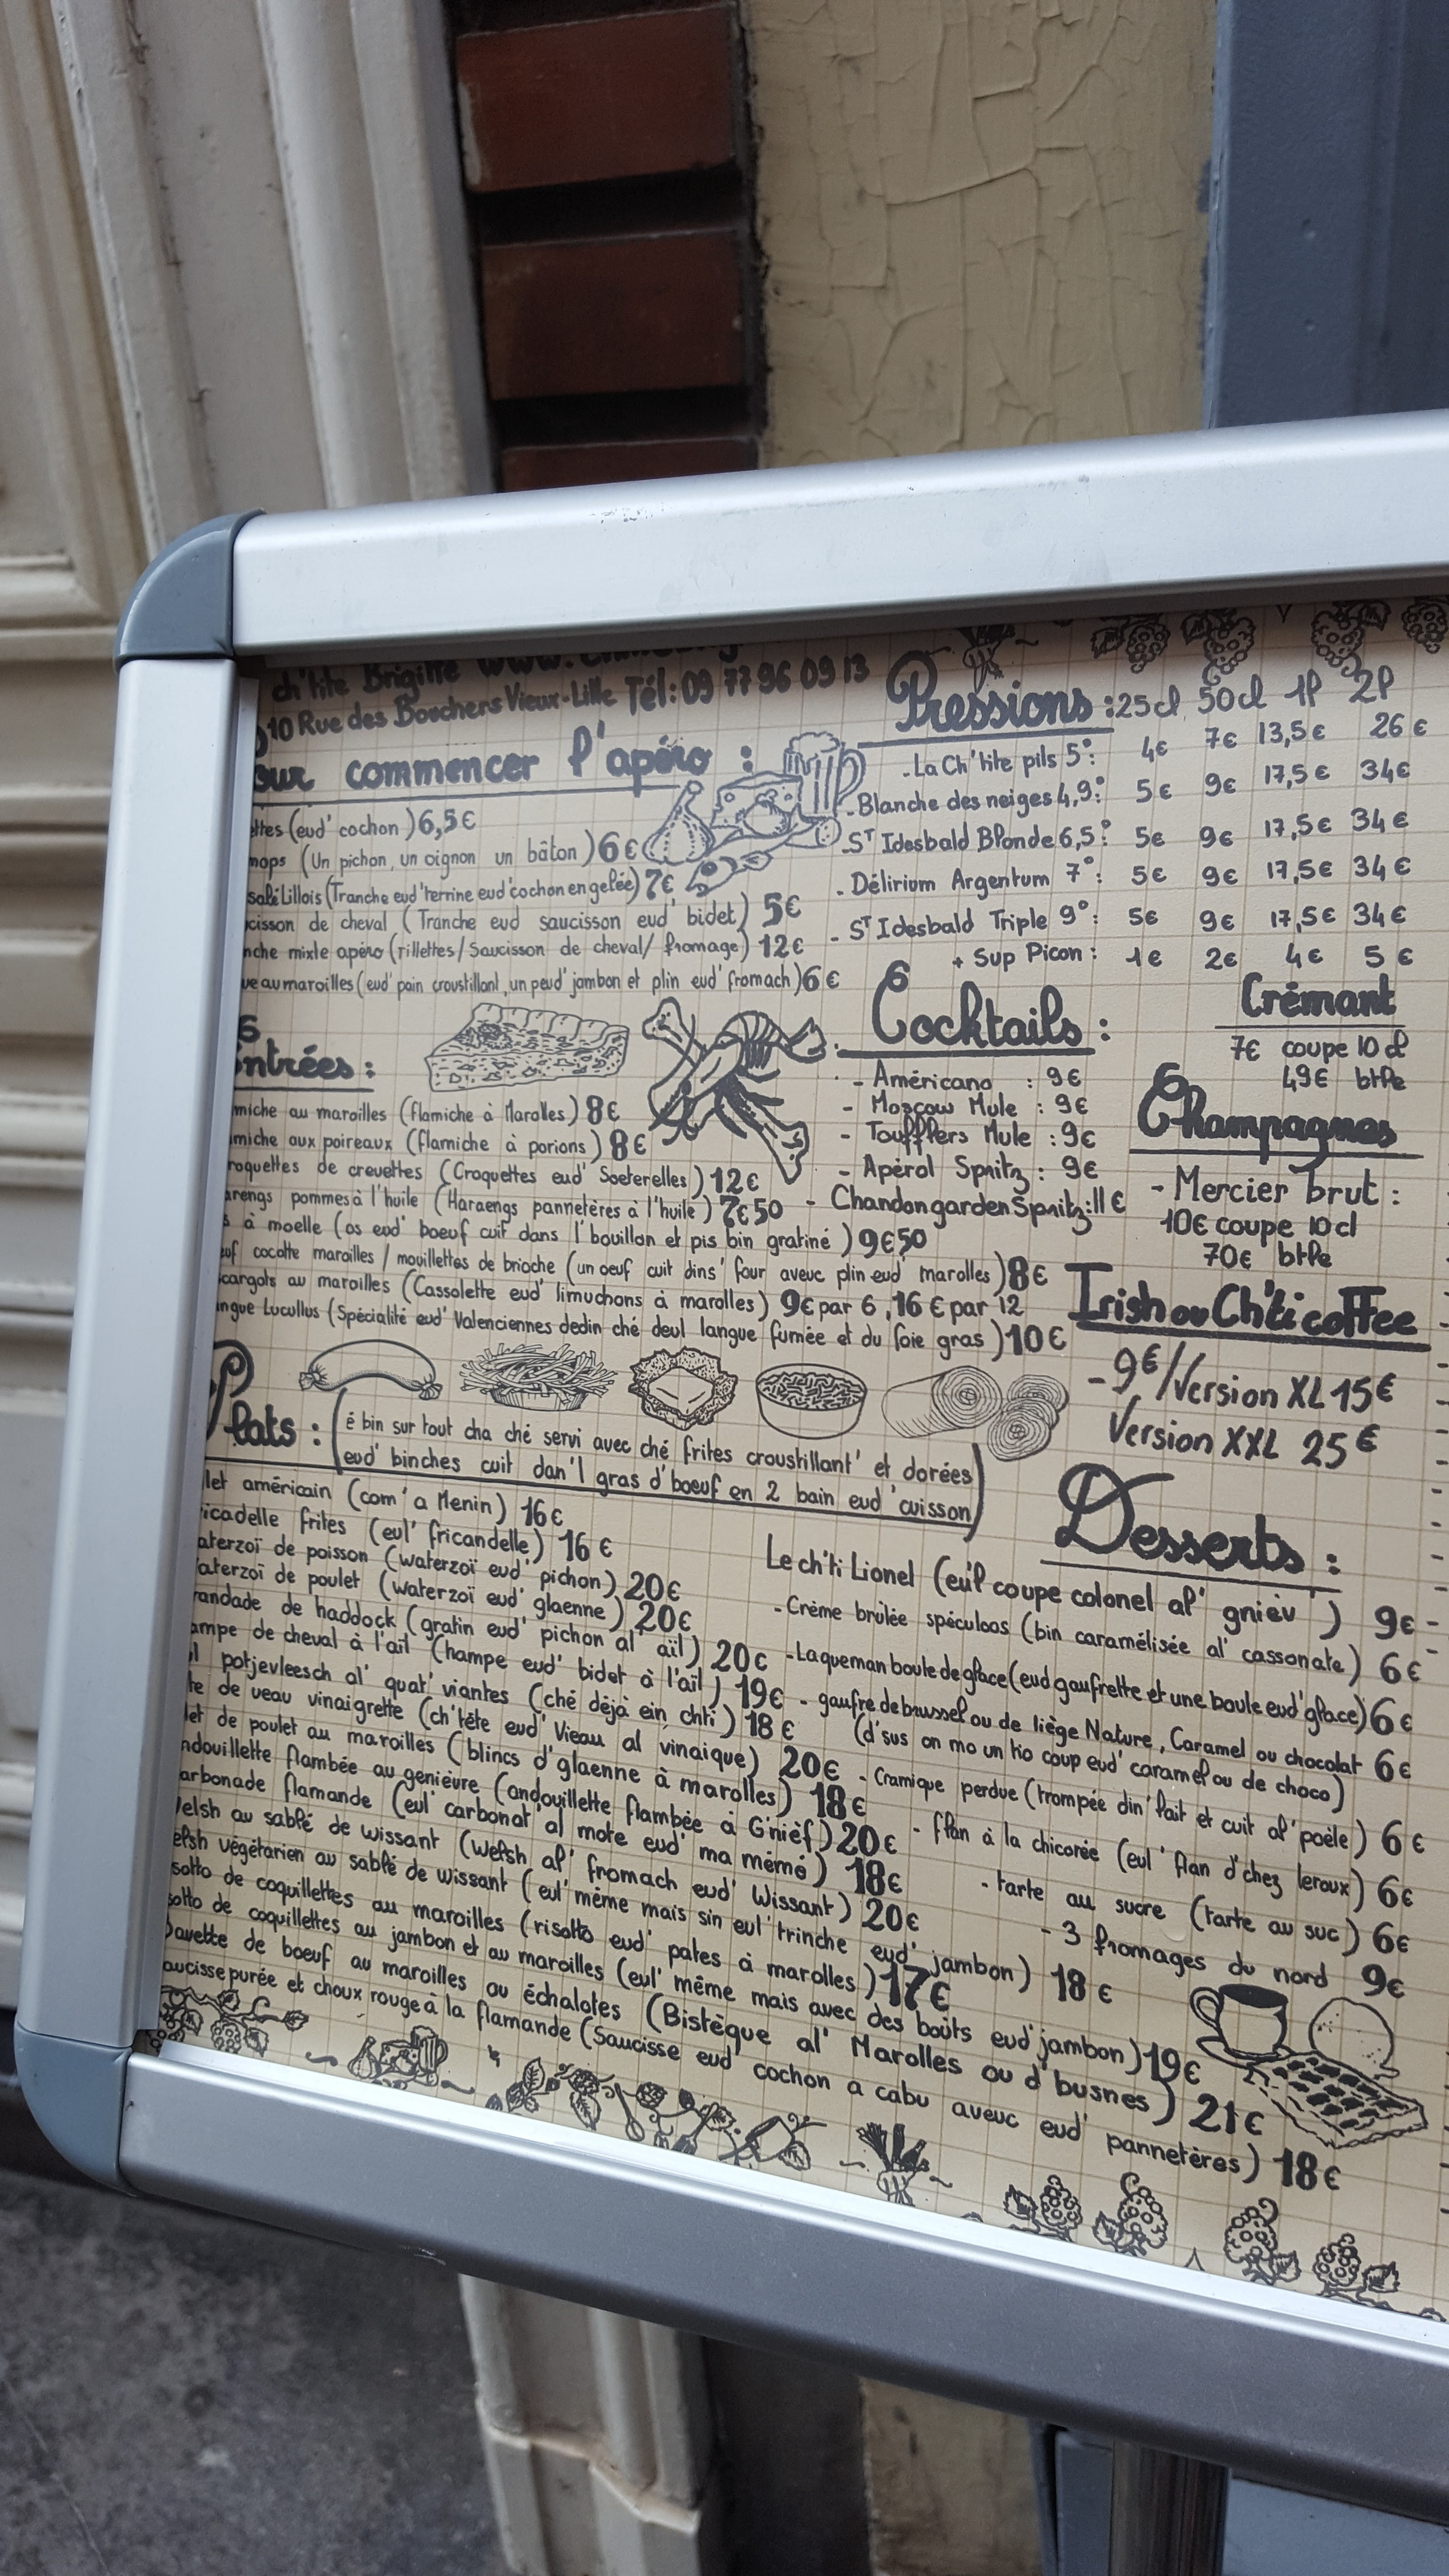 ch'tite Brigitte
10 Rue des Bouchers Vieux-Lille Tél: 09 77 96 09 13
our commencer l'apéro :
ettes (eud' cochon) 6,5€
mops (Un pichon, un oignon un bâton) 6€
salé Lillois (Tranche eud' terrine eud' cochon en gelée) 7€
cisson de cheval (Tranche eud saucisson eud' bidet) 5€
nche mixte apéro (rillettes/Saucisson de cheval/ fromage) 12€
ue au maroilles (eud' pain croustillant, un peud' jambon et plin eud' fromach) 6€
ntrées :
miche au maroilles (flamiche à Marolles) 8€
miche aux poireaux (flamiche à porions) 8€
roquettes de crevettes (Croquettes eud' Soeterelles) 12€
arengs pommes à l'huile (Haraengs pannetères à l'huile) 7€50
s à moelle (os eud' boeuf cuit dans l'bouillon et pis bin gratiné) 9€50
uf cocotte maroilles / mouillettes de brioche (un oeuf cuit dins' four aveuc plin eud' marolles) 8€
scargots au maroilles (Cassolette eud' limuchons à marolles) 9€ par 6, 16€ par 12
ngue Lucullus (Spécialité eud' Valenciennes dedin ché deul langue fumée et du foie gras) 10€
Plats : (é bin sur tout cha ché servi avec ché frites croustillant' et dorées
eud' binches cuit dan'l gras d'boeuf en 2 bain eud' cuisson)
let américain (com'a Menin) 16€
ricadelle frites (eul' fricandelle) 16€
aterzoï de poisson (waterzoï eud' pichon) 20€
aterzoï de poulet (waterzoï eud' glaenne) 20€
randade de haddock (gratin eud' pichon al' aïl) 20€
ampe de cheval à l'ail (hampe eud' bidet à l'ail) 19€
l potjevleesch al' quat' viantes (ché déjà ein chti) 18€
te de veau vinaigrette (ch'tête eud' Vieau al' vinaique) 20€
let de poulet au maroilles (blincs d'glaenne à marolles) 18€
ndouillette flambée au genièvre (andouillette flambée à G'nièf) 20€
arbonade flamande (eul' carbonat' al' mote eud' ma mémé) 18€
elsh au sablé de wissant (Welsh al' fromach eud' Wissant) 20€
elsh végétarien au sablé de wissant (eul' même mais sin eul' trinche eud' jambon) 18€
sotto de coquillettes au maroilles (risotto eud' pates à marolles) 17€
sotto de coquillettes au jambon et au maroilles (eul' même mais avec des boûts eud' jambon) 19€
Bavette de boeuf au maroilles ou échalotes (Bistèque al' Marolles ou d'busnes) 21€
aucisse purée et choux rouge à la flamande (Saucisse eud' cochon a cabu aveuc eud' pannetères) 18€
Pressions : 25cl 50cl 1l 2l
- La Ch'tite pils 5° : 4€ 7€ 13,5€ 26€
- Blanche des neiges 4,9° : 5€ 9€ 17,5€ 34€
- ST Idesbald Blonde 6,5° : 5€ 9€ 17,5€ 34€
- Délirium Argentum 7° : 5€ 9€ 17,5€ 34€
- ST Idesbald Triple 9° : 5€ 9€ 17,5€ 34€
+ Sup Picon : 1€ 2€ 4€ 5€
Cocktails :
- Américano : 9€
- Moscow Mule : 9€
- Toufflers Mule : 9€
- Apérol Spritz : 9€
- Chandon garden Spritz : 11€
Crémant
7€ coupe 10 cl
49€ btlle
Champagnes
- Mercier brut :
10€ coupe 10cl
70€ btlle
Irish ou Ch'ti coffee
- 9€/Version XL 15€
Version XXL 25€
Desserts :
Le ch'ti Lionel (eu'l coupe colonel al' gniev') 9€
- Crème brûlée spéculoos (bin caramélisée al' cassonate) 6€
- La queman boule de glace (eud gaufrette et une boule eud' glace) 6€
- gaufre de brussel ou de liège Nature, Caramel ou chocolat 6€
(d'sus on mo un tio coup eud' caramel ou de choco)
- Cramique perdue (trompée din' lait et cuit al' poèle) 6€
- flan à la chicorée (eul' flan d'chez leroux) 6€
- tarte au sucre (tarte au suc) 6€
- 3 fromages du nord 9€